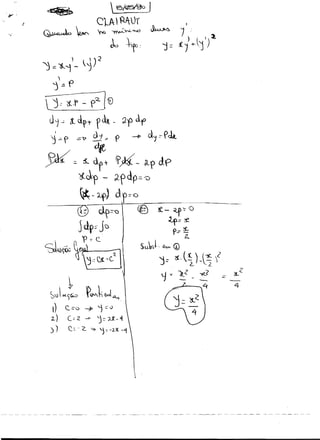 CLAIRAUT
Quando tem no máximo duas y'
do tipo: y = xy' - (y')²
y = xy' - (y')²
y' = p
y = xp - p² ①
dy = x dp + p dx - 2p dp
y' = p => dy/dx = p → dy = Pdx
Pdx = x dp + Pdx - 2p dp
xdp - 2pdp = 0
(x - 2p) dp = 0
① dp = 0
∫dp = ∫0
P = C
Solução Geral
y = Cx - C²
Solução Particular
1) C = 0 → y = 0
2) C = 2 → y = 2x - 4
3) C = -2 → y = -2x - 4
② x - 2p = 0
2p = x
P = x/2
Subst. em ①
y = x.(x/2) - (x/2)²
y = x²/2 - x²/4 = x²/4
y = x²/4